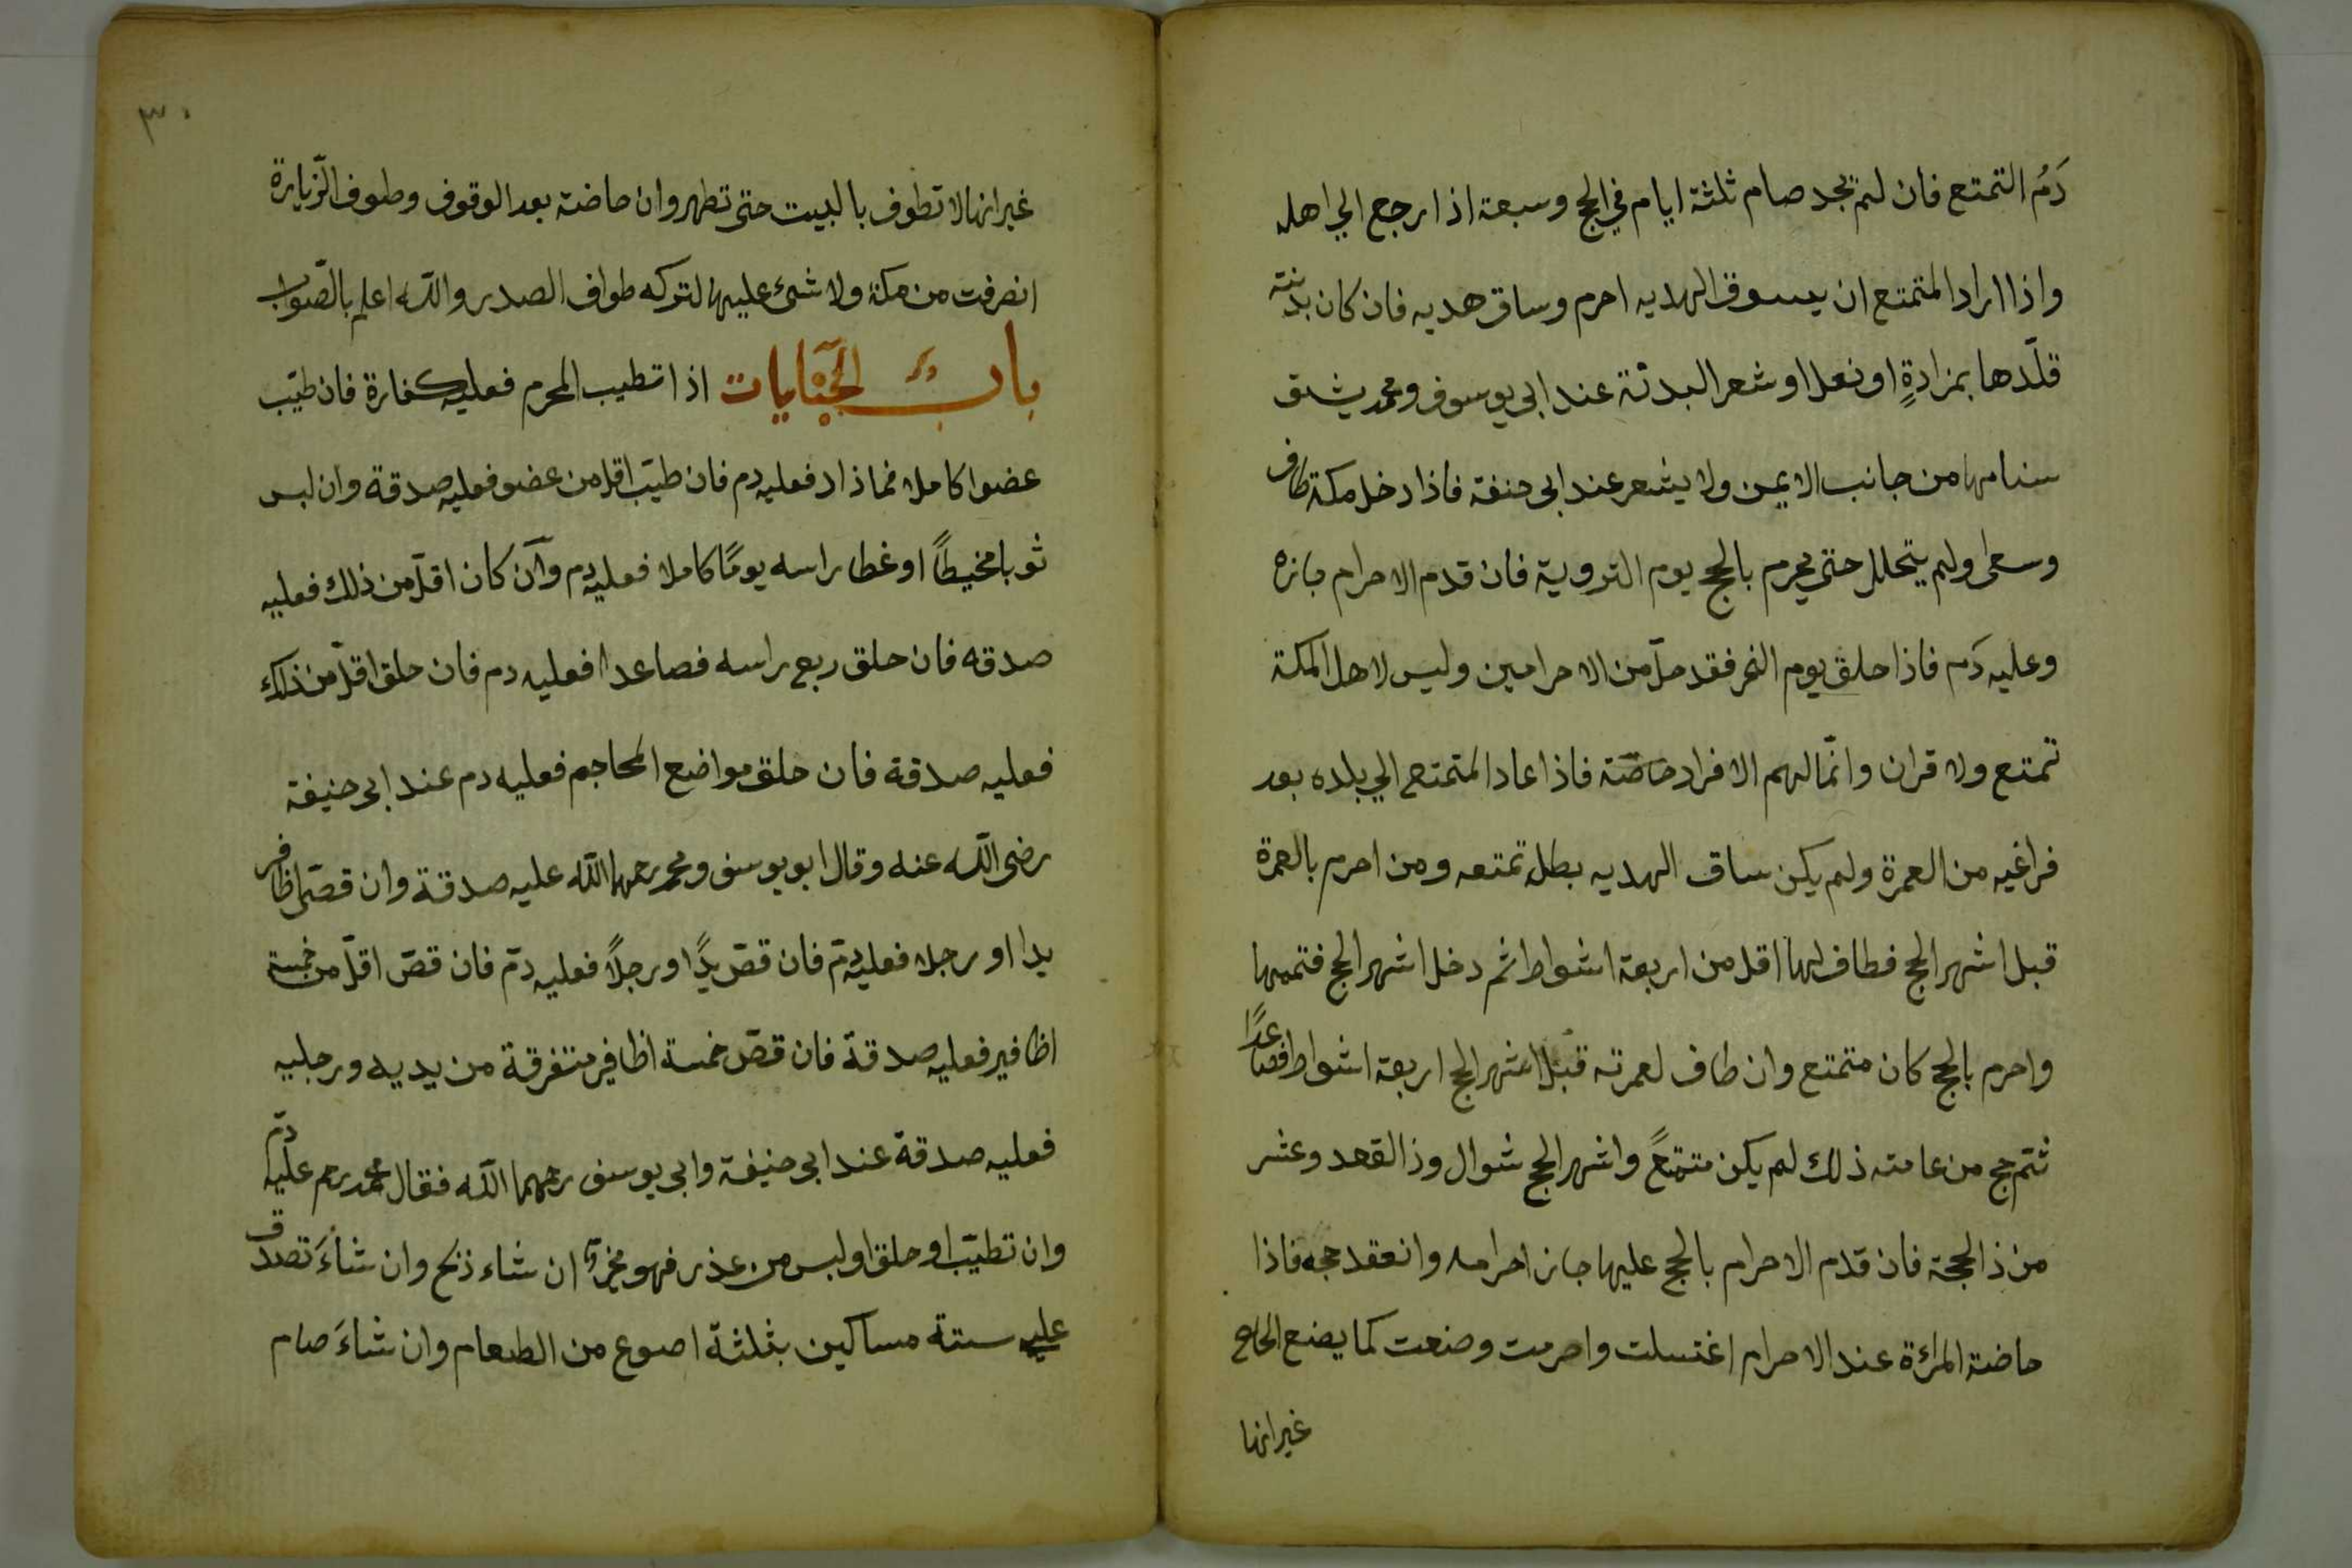 دَمُ التمتع فان لم يجد صام ثلثة ايام في الحج وسبعة اذا رجع الي اهله
واذا اراد المتمتع ان يسوق الهديه احرم وساق هديه فان كان بدنته
قلّدها بمزادةٍ او نعل او شعر البدنة عند ابى يوسوف ومحمد يشق
سنامها من جانب الايمن ولا يشعر عند ابى حنفة فاذا دخل مكة طاف
وسعى ولم يتحلل حتى يحرم بالحج يوم التروية فان قدم الاحرام جازه
وعليه دَم فاذا حلق يوم النحر فقد حلّ من الاحرامين وليس لاهل المكة
تمتع ولا قران وانّما لهم الافراد خاصّة فاذا عاد المتمتع الي بلده بعد
فراغيه من العمرة ولم يكن ساق الهديه بطل تمتعه ومن احرم بالعمرة
قبل اشهر الحج فطاف لها اقل من اربعة اشواط ثم دخل اشهر الحج فتممها
واحرم بالحج كان متمتع وان طاف لعمرته قبل اشهر الحج اربعة اشواط فصاعدًا
ثتم حج من عامته ذلك لم يكن متمتعً واشهر الحج شوال وذالقعد وعشر
من ذالحجة فان قدم الاحرام بالحج عليها جاز احرامه وانعقد حجه فاذا
حاضة المراءة عند الاحرام اغتسلت واحرمت وصنعت كما يصنع الحاج
غير انها
٣٠
غير انها لا تطوف بالبيت حتى تطهر وان حاضة بعد الوقوف وطوف الزّيارة
انصرفت من مكة ولا شئ عليها لتركه طواف الصدر والله اعلم بالصّواب
باب الجنايات اذا تطيب المحرم فعليه كفارة فان طيّب
عضوا كاملا فما زاد فعليه دم فان طيّب اقل من عضو فعليه صدقة وان لبس
ثوبا مخيطاً او غطا راسه يومًا كاملا فعليه دم وان كان اقلّ من ذلك فعليه
صدقه فان حلق ربع راسه فصاعدا فعليه دم فان حلق اقلّ من ذلك
فعليه صدقة فان حلق مواضع المحاجم فعليه دم عند ابى حنيفة
رضى الله عنه وقال ابو يوسف ومحمد رحمهما الله عليه صدقة وان قصّ اظافر
يدا او رجلا فعليه دمّ فان قصّ يدًا ورجلاً فعليه دمّ فان قصّ اقلّ من خمسة
اظافير فعليه صدقة فان قصّ خمسة اظافير متفرقة من يديه ورجليه
فعليه صدقة عند ابى حنيفة وابى يوسف رحمهما الله فقال محمد رحم عليه دمّ
وان تطيّب او حلق او لبس من عذر فهو مخيّر ان شاء ذبح وان شاءَ تصدق
على ستة مساكين بثلثة اصوع من الطعام وان شاءَ صام